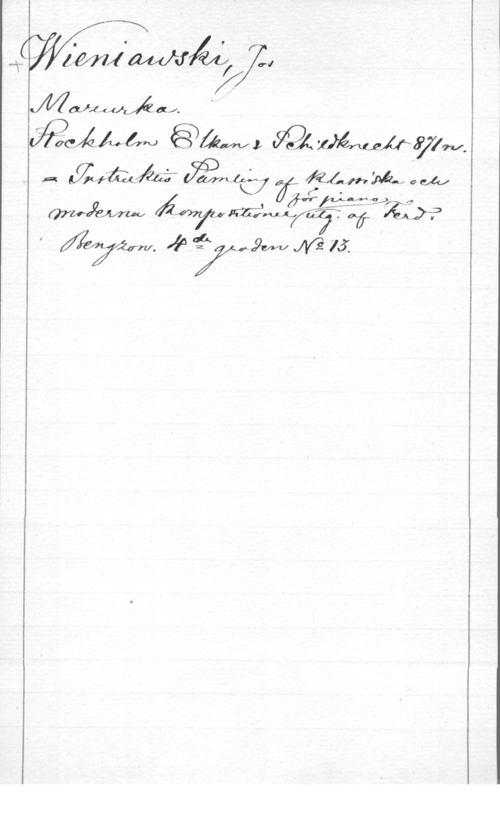 Wieniawski, Jos
Mazurka.
Stockholm Elkan & Schildknecht 871 n.
= Instruktiv Samling af klassiska och
för piano,
moderna kompositioner utg. af Ferd.
Bengzon. 4de graden No 13.